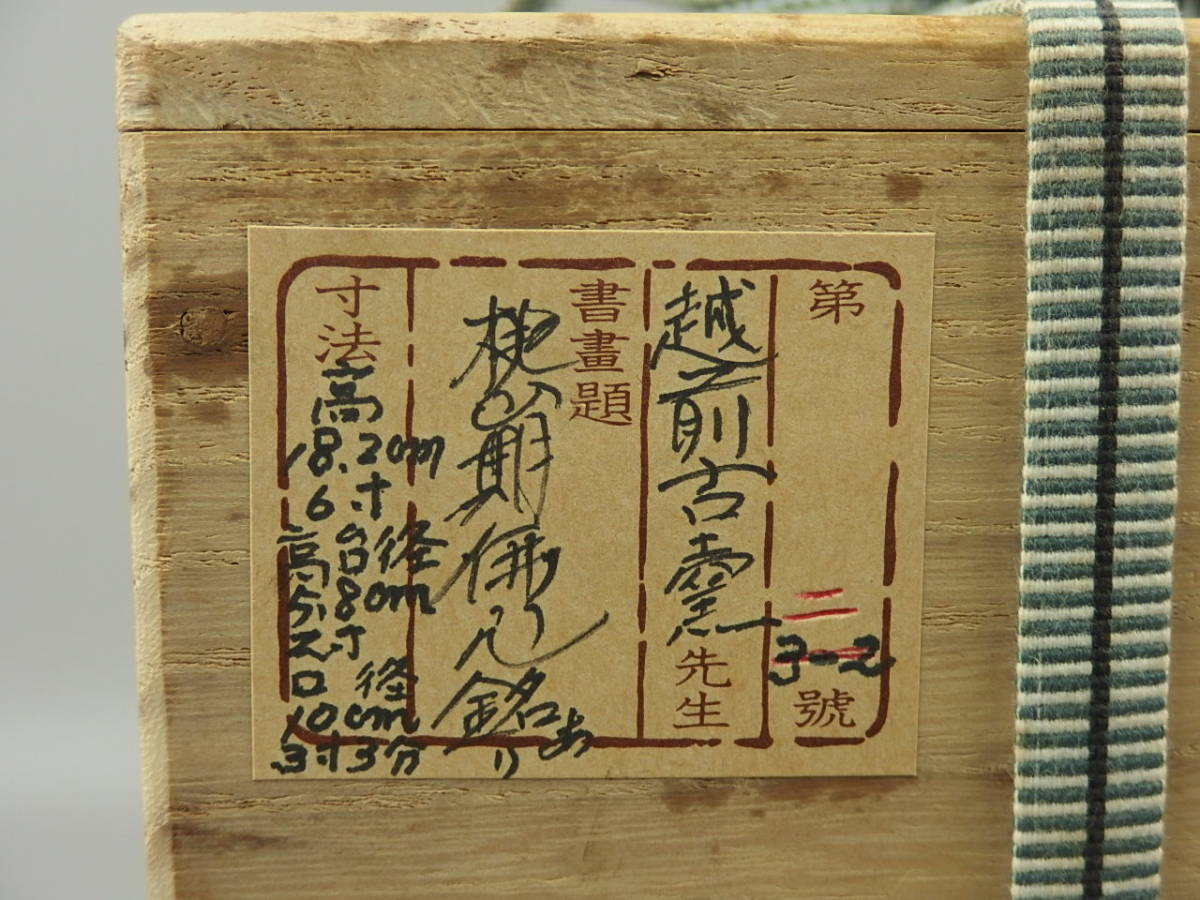 第二3-2號
越前古窯先生
書畫題
桃山期 銘あり
寸法
高
18.2cm
6寸
高台径
5.8cm
2寸
口径
10cm
3寸3分